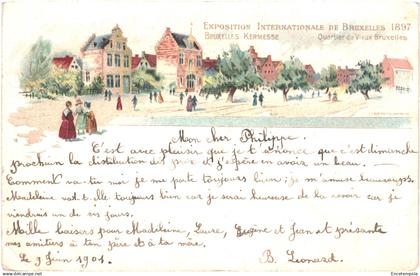 EXPOSITION INTERNATIONALE DE BRUXELLES 1897
BRUXELLES KERMESSE Quartier du Vieux Bruxelles
Mon cher Philippe.
C'est avec plaisir que je t'énonce que c'est dimanche
prochain la distribution des prix et j'espère en avoir un beau. —
Comment va-tu moi je me porte toujours bien, je m'amuse beaucoup.
Madeleine va-t-elle toujours bien car je serai heureuse de la avoir car je
viendrai un de six jours.
Mille baisers pour Madeleine, Lucre, Eugène et Jean et présente
mes amitiers à ton père et à ta mère.
Le 9 Juin 1901. B. Leonard.